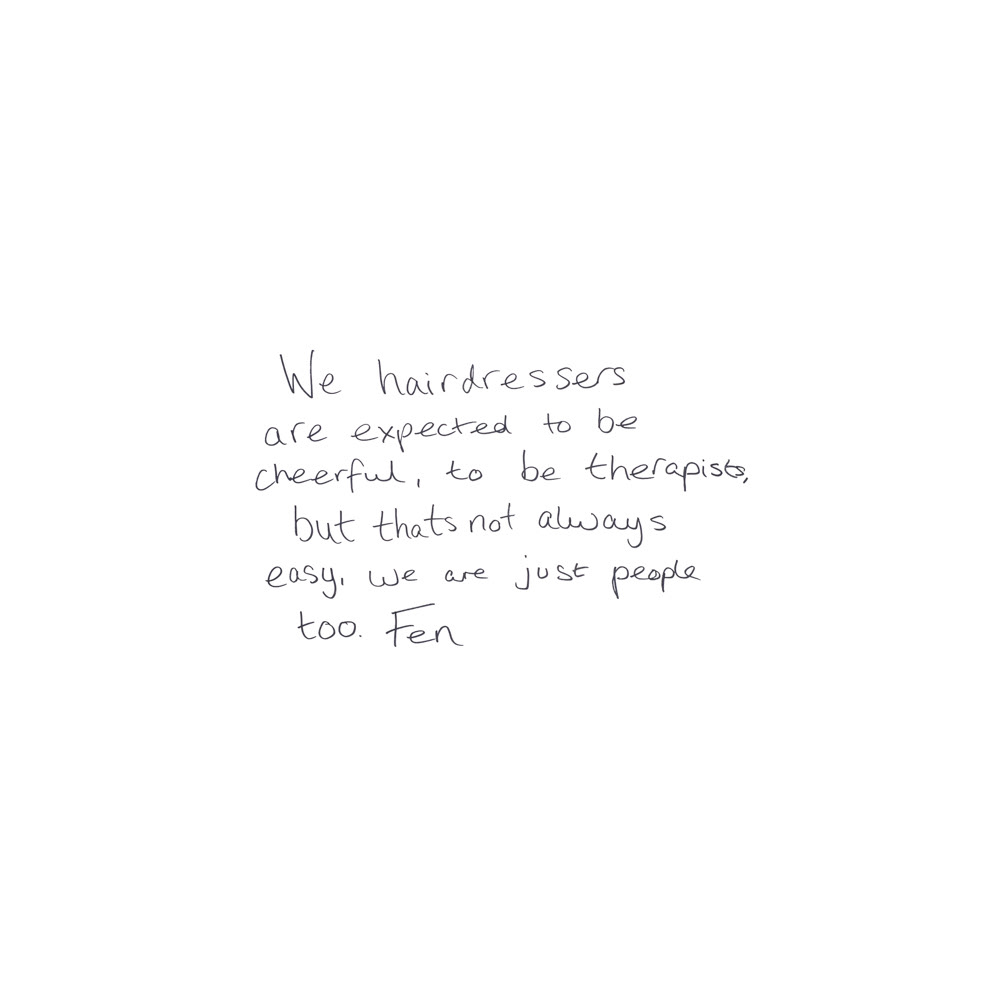 We hairdressers
are expected to be
cheerful, to be therapists,
but thats not always
easy, we are just people
too. Fen